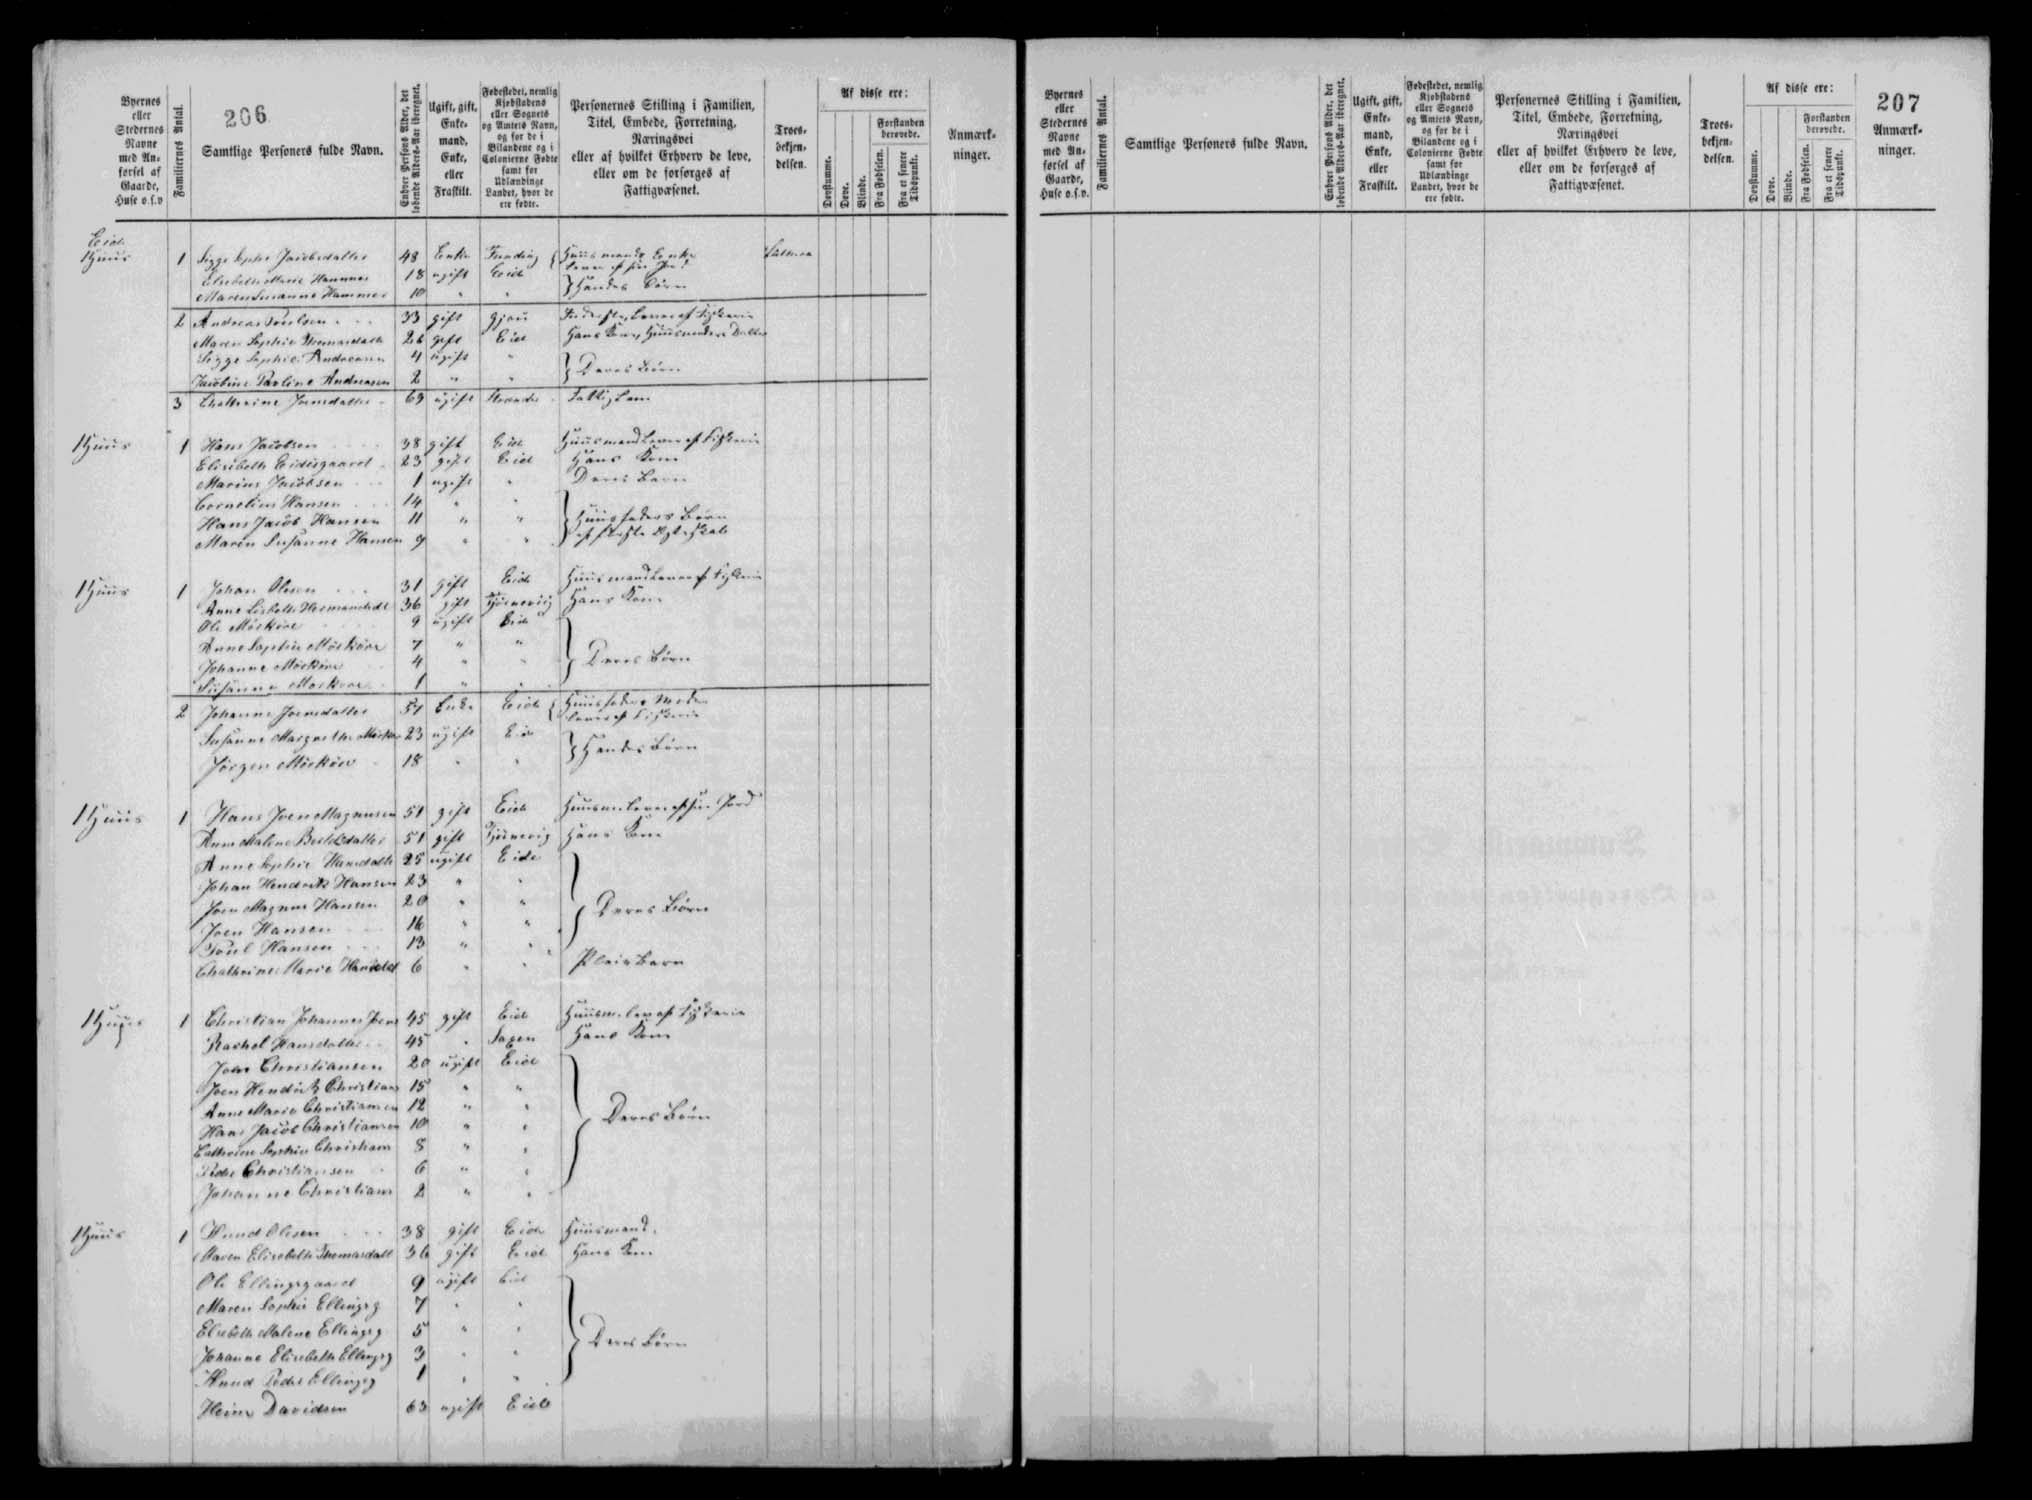 206
Byernes eller Stedernes Navne med Anførsel af Gaarde, Huse o.s.v
Familiernes Antal.
Samtlige Personers fulde Navn.
Enhver Persons Alder, det løbende Alders-Aar iberegnet.
Ugift, gift, Enkemand, Enke, eller Fraskilt.
Fødestedet, nemlig Kjøbstadens eller Sognets og Amtets Navn, og for de i Bilandene og i Colonierne Fødte samt for Udlændinge Landet, hvor de ere fødte.
Personernes Stilling i Familien, Titel, Embede, Forretning, Næringsvei eller af hvilket Erhverv de leve, eller om de forsørges af Fattigvæsenet.
Troesbekjendelsen.
Af disse ere:
Døvstumme.
Døve.
Blinde.
Forstanden berøvede.
Fra Fødselen.
Fra et senere Tidspunkt.
Anmærkninger.
Eide
Huus 1 Sigge Sophie Jacobsdatter 48 Enke Funding Huusmands Enke
lever af sin Jord
Elsebeth Marie Hammer 18 ugift Eide
Maren Susanne Hammer 10 " " Hendes Børn
2 Andreas Poulsen 33 gift Gjou Inderste, lever af Fiskerie
Maren Sophie Thomasdatt 26 gift Eide Hans Kone, Huusmodere Datter
Sigge Sophie Andreasen 4 ugift "
Jacobine Pauline Andreasen 2 " " Deres Børn
3 Chathrine Joensdatter 63 ugift Fattiglem
Huus 1 Hans Jacobsen 38 gift Eide Huusmand lever af Fiskerie
Elisebeth Eidisgaard 23 gift Eide Hans Kone
Marius Jacobsen 1 ugift " Deres Barn
Cornelius Hansen 14 " "
Hans Jacob Hansen 11 " " Huusfaders Børn
Maren Susanne Hansen 9 " " af første Ægteskab
Huus 1 Johan Olesen 31 gift Eide Huusmand lever af Fiskerie
Anne Lisbeth Hermansdt 36 gift Tjørnevig Hans Kone
Ole Mörköre 9 ugift Eide
Anne Sophie Mörköre 7 " "
Johanne Mörköre 4 " " Deres Børn
Susanne Mörköre 1 " "
2 Johanne Joensdatter 51 Enke Eide Huusfaders Moder
lever af Fiskerie
Susanne Margrethe Mörköre 23 ugift Eide
Jörgen Mörköre 18 " " Hendes Børn
Huus 1 Hans Joen Magnusen 51 gift Eide Huusm. lever af sin Jord
Anne Malene 51 gift Tjörnevig Hans Kone
Anne Sophie Hansdatt 25 ugift Eide
Johan Hendrik Hansen 23 " "
Joen Magnus Hansen 20 " " Deres Børn
Joen Hansen 16 " "
Poul Hansen 13 " "
Chathrine Marie Hansdat 6 " " Pleiebarn
Huus 1 Christian Johannes Joens 45 gift Eide Huusm. lever af Fiskerie
Rachel Hansdatter 45 " Saxen Hans Kone
Joen Christiansen 20 ugift Eide
Joen Hendrik Christians 15 " "
Anne Marie Christiansen 12 " "
Hans Jacob Christiansen 10 " " Deres Børn
Cathrine Sophie Christians 8 " "
Peder Christiansen 6 " "
Johanne Christians 2 " "
Huus 1 Knud Olesen 38 gift Eide Huusmand.
Maren Elisebeth Thomasdatt 36 gift Eide Hans Kone
Ole Ellingsgaard 9 ugift Eide
Maren Sophie Ellingsg 7 " "
Elsebeth Malene Ellingsg 5 " "
Johanne Elisebeth Ellingsg 3 " " Deres Børn
Knud Peder Ellingsg 1 " "
Heine Davidsen 63 ugift Eide
207
Byernes eller Stedernes Navne med Anførsel af Gaarde, Huse o.s.v.
Familiernes Antal.
Samtlige Personers fulde Navn.
Enhver Persons Alder, det løbende Alders-Aar iberegnet.
Ugift, gift, Enkemand, Enke, eller Fraskilt.
Fødestedet, nemlig Kjøbstadens eller Sognets og Amtets Navn, og for de i Bilandene og i Colonierne Fødte samt for Udlændinge Landet, hvor de ere fødte.
Personernes Stilling i Familien, Titel, Embede, Forretning, Næringsvei eller af hvilket Erhverv de leve, eller om de forsørges af Fattigvæsenet.
Troesbekjendelsen.
Af disse ere:
Døvstumme.
Døve.
Blinde.
Forstanden berøvede.
Fra Fødselen.
Fra et senere Tidspunkt.
Anmærkninger.